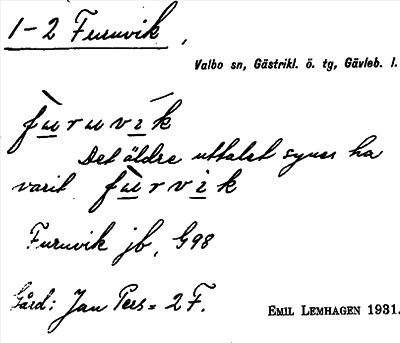 1-2 Furuvik,
Valbo sn, Gästrikl. ö. tg, Gävleb. l.
fùruvík
Det äldre uttalet synes ha
varit fùrvìk
Furuvik jb, G98
Gård: Jan Pers = 2 F.
EMIL LEMHAGEN 1931.